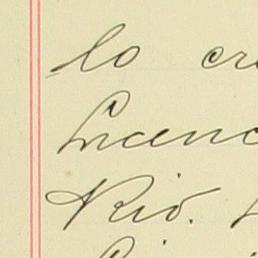 lo cr
Licenc
Rio.